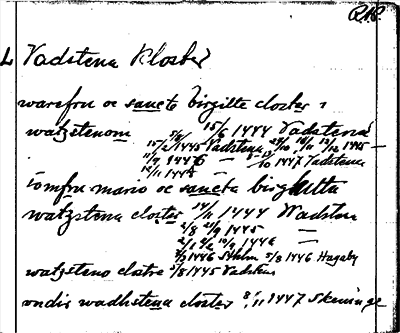 RAP.
L Vadstena Kloster
warefru oc sancte birgitte closter i
watzstenom 5/6 15/6 1444 Vadstena
15/2 1445 Vadstena 29/10 10/11 12/12 1445 —
11/9 1446 — 8-13/10 1447 Vadstena
12/11 1448
iomfru mario oc sancta birghitta
watzstena closter 14/11 1444 Wadsten
2/8 21/9 1445 —
1446 —
1446 Sthlm 5/8 1446 Hageby
watzsteno clstre 3/8 1445 Vadstena
wadhstena closter 8/11 1447 Skeninge